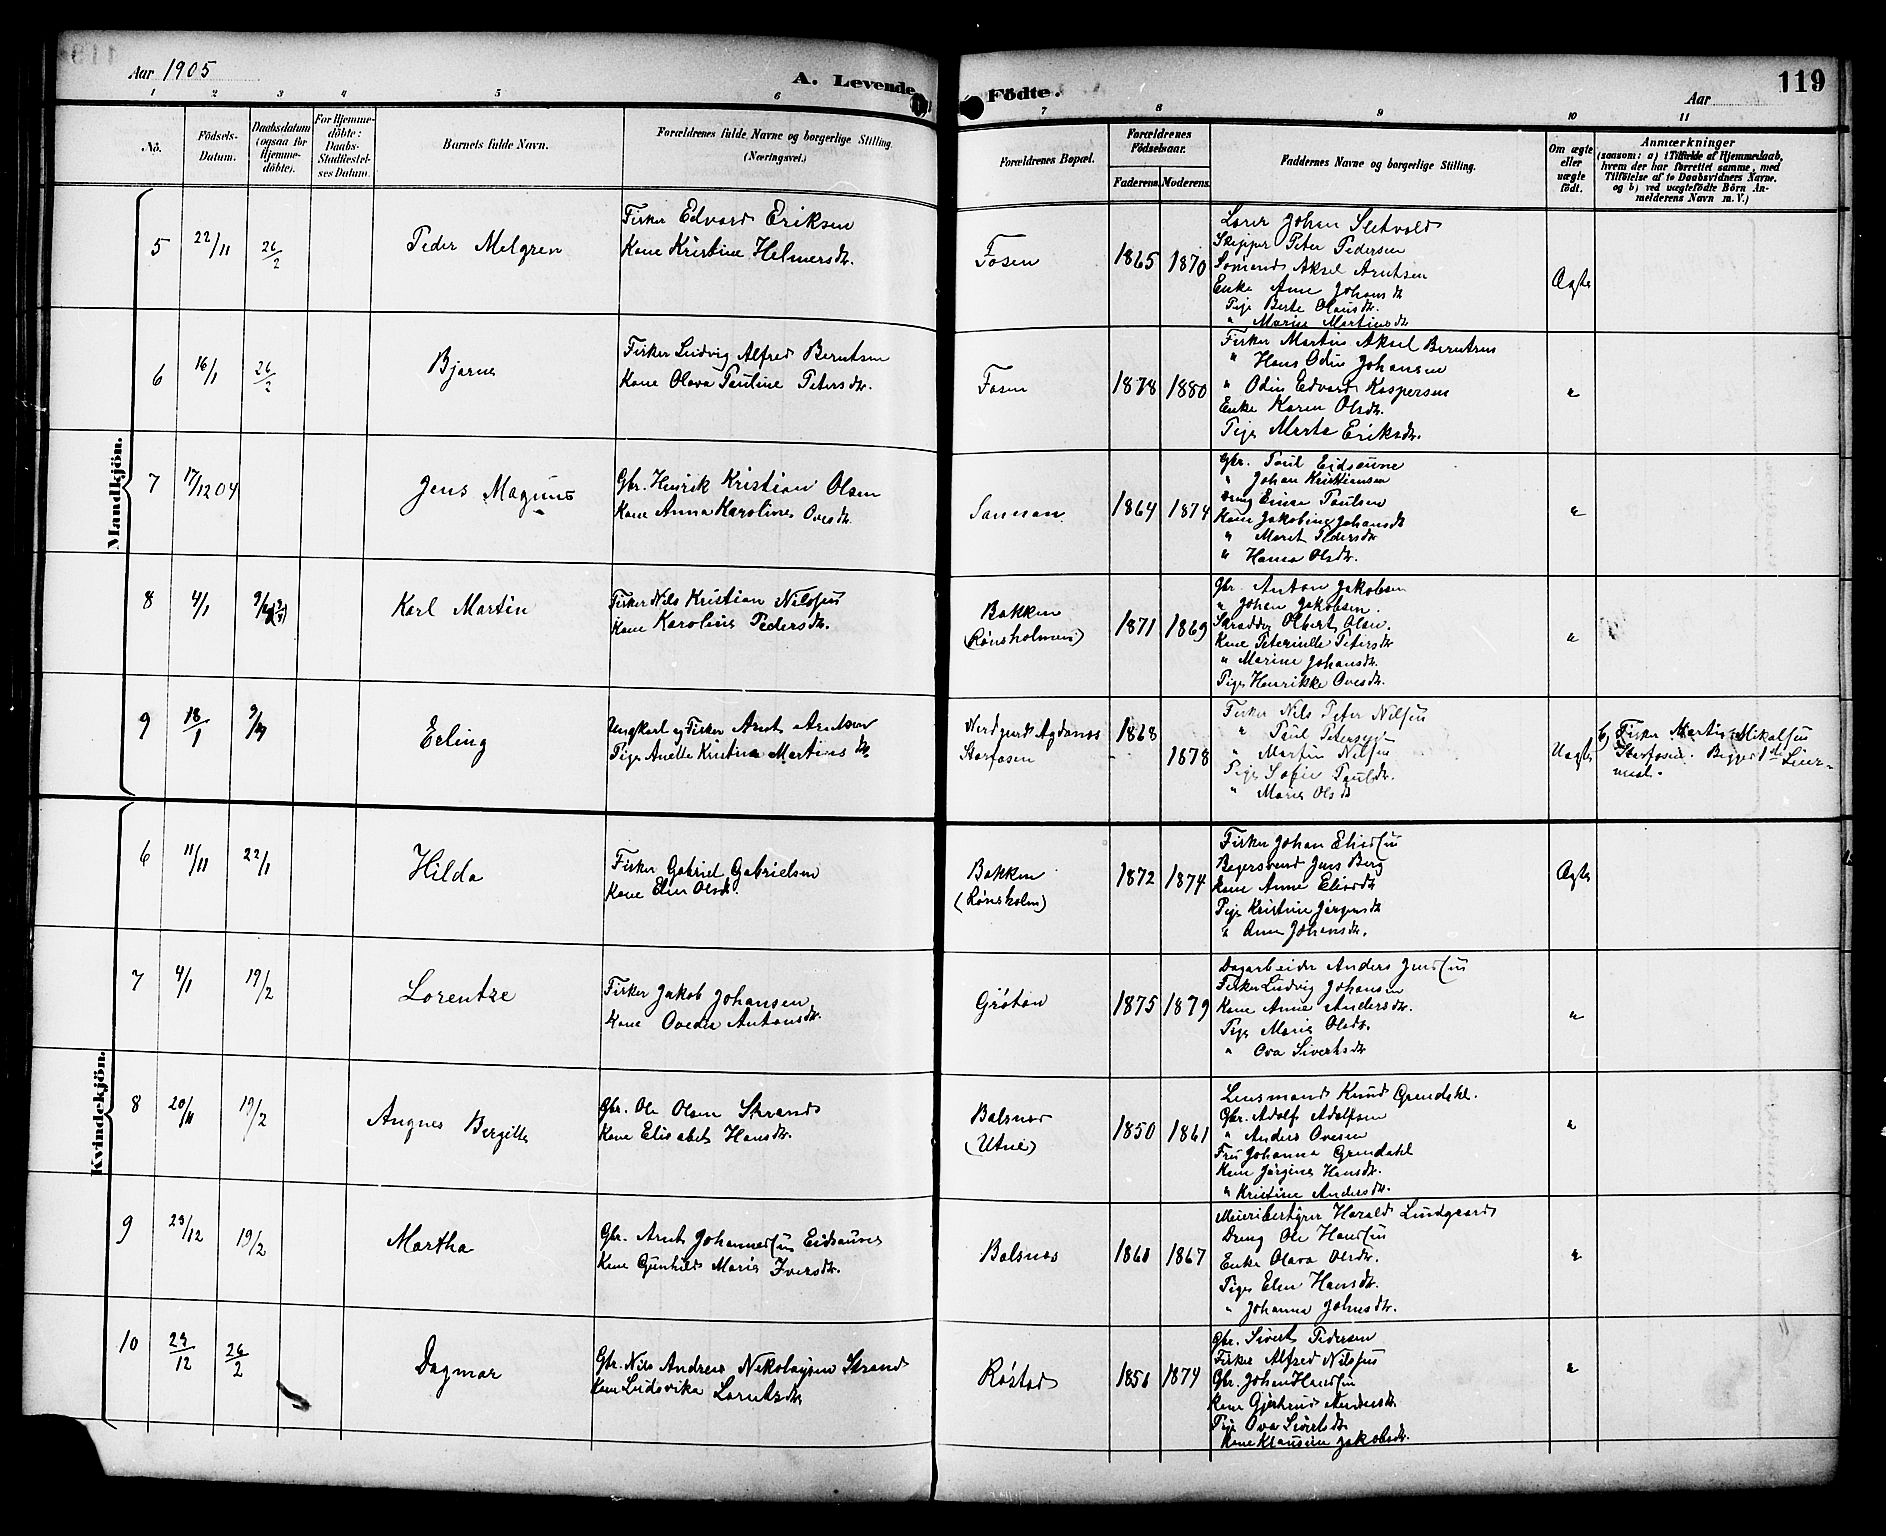 Aar 1905
A. Levende Födte.
Aar
119
1 2 3 4 5 6 7 8 9 10 11
No.
Födsels-Datum.
Daabsdatum (ogsaa for Hjemme-döbte).
For Hjemme-döbte: Daabs-Stadfæstel-ses Datum.
Barnets fulde Navn.
Forældrenes fulde Navne og borgerlige Stilling. (Næringsvei.)
Forældrenes Bopæl.
Forældrenes Födselsaar.
Faderens. Moderens.
Faddernes Navne og borgerlige Stilling.
Om ægte eller uægte födt.
Anmærkninger
(saasom: a) i Tilfælde af Hjemmedaab,
hvem der har forrettet samme, med
Tilföielse af to Daabsvidners Navne.
og b) ved uægtefödte Börn An-
melderens Navn m. V.)
Mandkjön.
5 22/11 26/2 Peder Melgren
Fisker Edvard Eriksen
Kone Kristine Helmersdtr.
Fosen 1865 1870
Lærer Johan Sletvold
Skipper Peter Pedersen
Sømand Aksel Arntsen
Enke Anne Johansdtr
Pige Berte Olausdtr.
" Marie Martinsdtr
Ægte
6 16/1 26/2 Bjarne
Fisker Ludvig Alfred Berntsen
Kone Olava Pauline Petersdtr.
Fosen 1878 1880
Fisker Martin Aksel Berntsen
" Hans Odin Johansen
" Odin Edvard Kaspersen
Enke Karen Olsdtr.
Pige Marta Eriksdtr.
"
7 17/12 04 Jens Magnus
Gbr. Henrik Kristian Olsen
Kone Anna Karoline Ovesdtr.
1864 1874
Gbr. Paul Eidsaune
" Johan Kristiansen
Dreng Einar Paulsen
Kone Jakobine Johansdtr
" Marit Pedersdtr
" Hanna Olsdtr.
"
8 4/1 Karl Martin
Fisker Nils Kristian Nilssen
Kone Karoline Pedersdtr.
Bakken
(Rønsholmen)
1871 1869
Gbr. Anton Jakobsen
" Johan Jakobsen.
Skrædder Olbert Olsen.
Kone Peternille Petersdtr
" Marine Johansdtr.
Pige Henrikke Ovesdtr.
"
9 18/1 Erling
Ungkarl og Fisker Arnt Arntsen
Pige Anette Kristine Martinsdtr
Agdenes
Storfosen
1868
1878
Fisker Nils Peter Nilsen
" Paul Petersen
" Martin Nilsen
Pige Sofie Paulsdtr.
" Marie Olsdtr
Uægte
b) Fisker Martin Mikalsen
Storfosen. Begges 1ste Leier-
maal.
Kvindekjön.
6 11/11 22/1 Hilda
Fisker Gabriel Gabrielsen
Kone Elen Olsdtr.
Bakken
(Rønsholm)
1872 1874
Fisker Johan Eliassen
Bagersvend Jens Berg
Kone Anne Eliasdtr
Pige Kristine Jørgensdtr
" Anna Johansdtr.
Ægte
7 4/1 19/2 Lorentze
Fisker Jakob Johansen
Kone Ovedia Antonsdtr.
Grøtan 1875 1879
Dagarbeider Anders Jenssen
Fisker Ludvig Johansen
Kone Anne Andersdtr.
Pige Marie Olsdtr.
" Ova Sivertsdtr
"
8 20/11 19/2 Angnes Bergitte
Gbr. Ole Olsen Strand
Kone Elisabet Hansdtr.
Balsnes
(Utne)
1850 1861
Lensmand Knud Grendahl.
Gbr. Adolf Adolfsen
" Anders Ovesen
Fru Johanna Grendahl
Kone Jørgine Hansdtr.
" Kristine Andersdtr.
"
9 23/12 19/2 Martha
Gbr. Arnt Johannessen Eidsaune
Kone Gunhild Marie Iversdtr.
Balsnes 1867
Meieribestyrer Harald Lundgaard
Dreng Ole Hanssen
Enke Olava Olsdtr.
Pige Elen Hansdtr.
" Johanna Johnsdtr.
"
10 26/2 Dagmar
Gbr. Nils Andreas Nikolaysen Strand
Kone Ludovika Lorntsdtr
Røstad 1874
Gbr. Sivert Pedersen
Fisker Alfred Nilssen
Gbr. Johan Hanssen
Kone Gjertrud Andersdtr
Pige Ova Sivertsdtr
Kone Klausine Jakobsdtr.
"